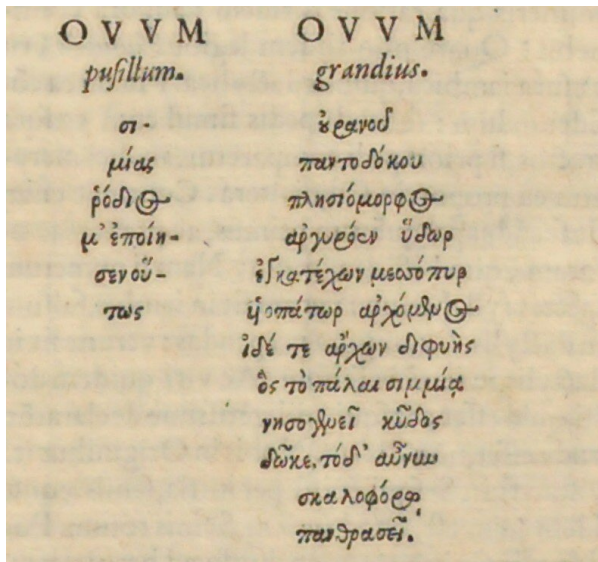 OVVM
pusillum.
σι-
μίας
ῥόδιος
μ' ἐποίη-
σεν οὕ-
τως
OVVM
grandius.
οὐρανοῦ
παντοδόκου
πλησιόμορφος
αργυρόεν ὕδωρ
ἐγκατέχων μεσόπυρ
αρχόμενος
ἰδέ τε ἄρχων διφυὴς
ὃς τὸ πάλαι σιμμίᾳ
νησογενεῖ κῦδος
δῶκε, τόδ' αὖ νυῦ
σκαλοφόρῳ
πανθρασεῖ.